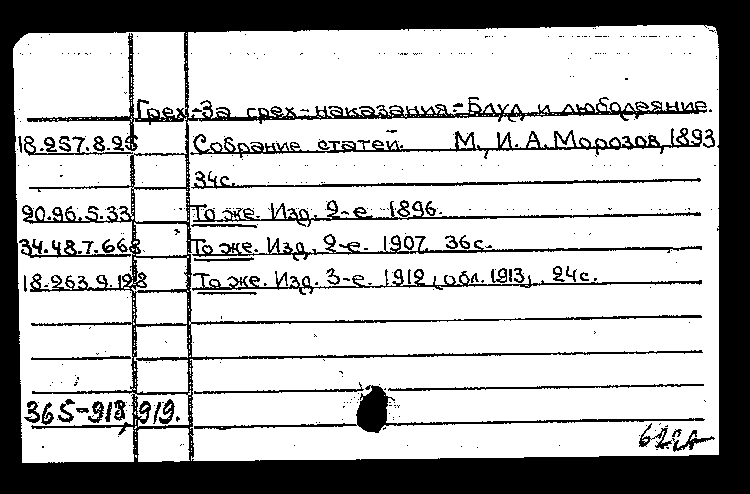 Грех-За грех-наказания-Блуд и любодеяние.
18.257.8.25 Собрание статей. М., И.А. Морозов, 1893
34с.
20.96.5.33 То же. Изд. 2-е 1896.
34.48.7.668 То же. Изд. 2-е. 1907. 36с.
18.263.9.128 То же. Изд. 3-е. 1912, обл. 1913, 24с.
365-918, 919.